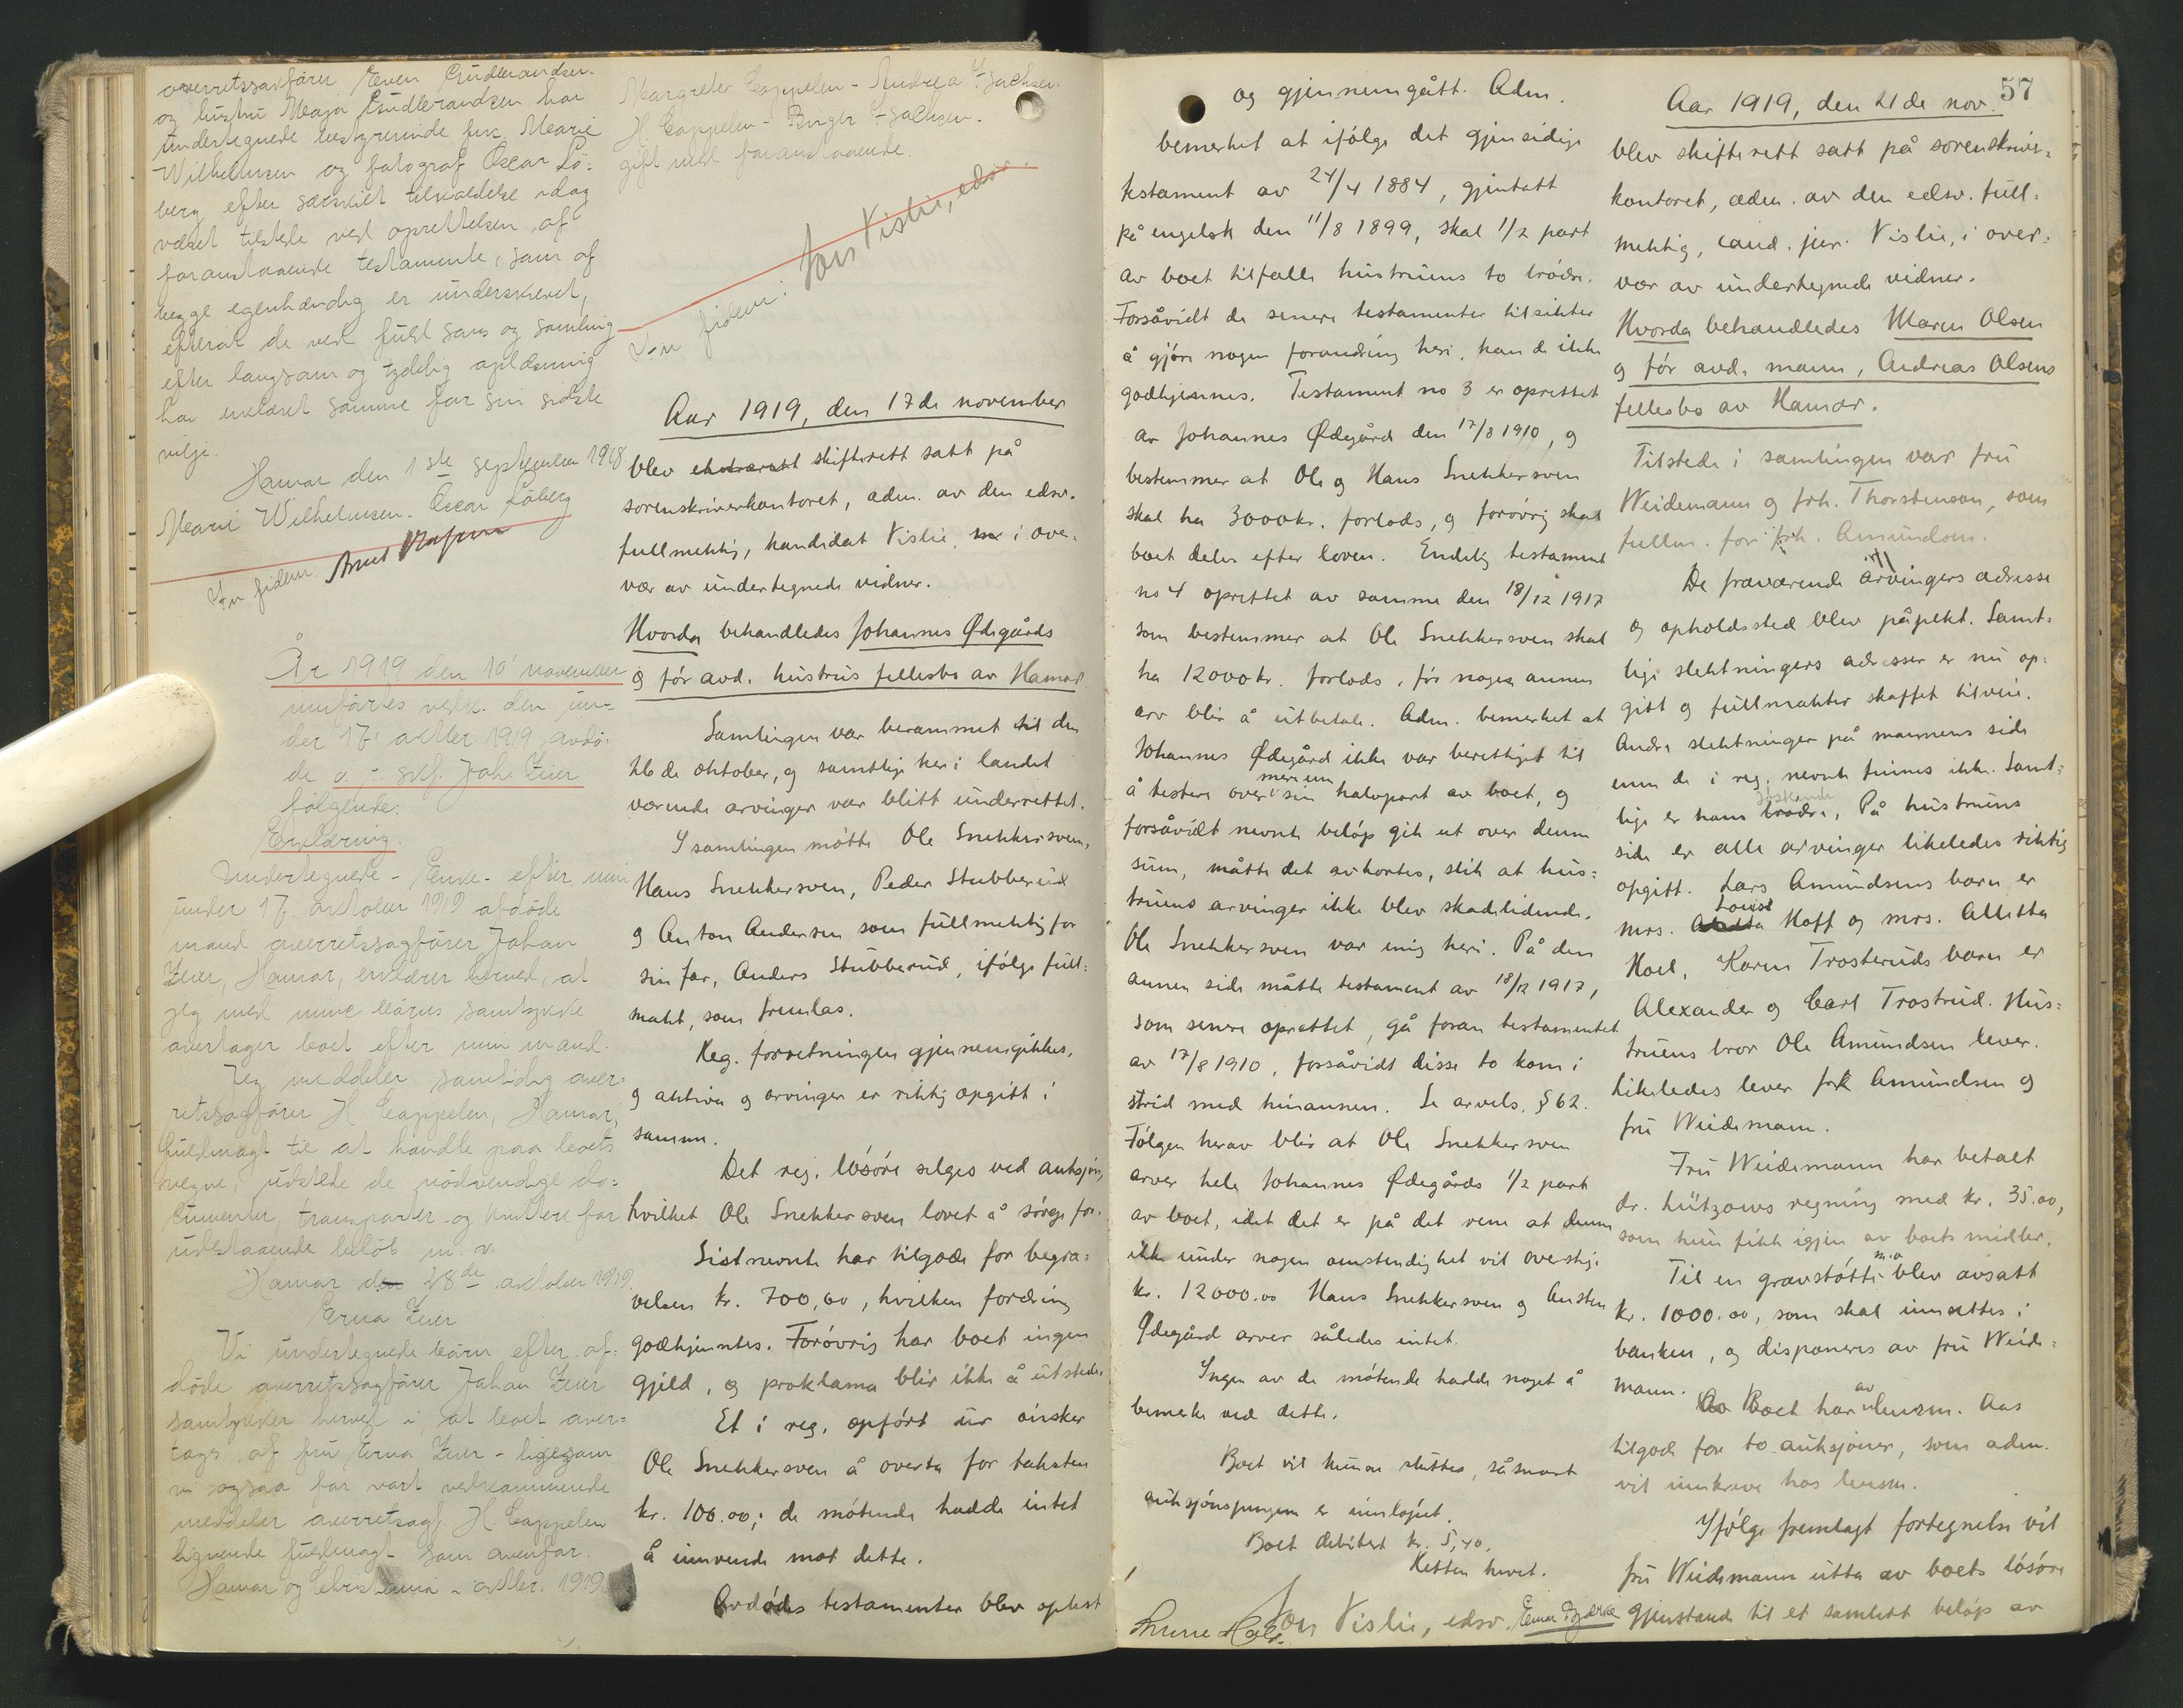 overretssakförer Even Gudbrandsen
og hustru Maja Gudbrandsen har
undertegnede bestyrerinde frk. Marie
Wilhelmsen og fotograf Oscar Lö-
berg efter særskilt tilkaldelse idag
været tilstede ved oprettelsen af
foranstaaende testamente, som af
begge egenhændig er underskrevet,
efterat de ved fuld sans og samling
efter langsom og tydelig oplæsning
har erklæret samme for sin sidste
vilje.
Hamar den 1ste september 1918.
Marie Wilhelmsen. Oscar Löberg
In fidem
År 1919 den 10' november
innførtes vedk. den un-
der 17' oktbr. 1919 avdö-
de o. r. skf. Joh. Zeier
fölgende:
Erklæring.
Undertegnede - Enke - efter min
under 17. oktober 1919 afdöde
mand overretssagförer Johan
Zeier, Hamar, erklærer herved, at
jeg med mine börns samtykke
overtager boet efter min mand.
Jeg meddeler samtidig over-
retssagförer H Cappelen, Hamar,
fuldmagt til at handle paa boets
vegne, udstede de nödvendige do-
kumenter, transporter og kvittere for
udestaaende belöb m. v.
Hamar den 28de oktober 1919.
Erna Zeier
Vi undertegnede börn efter af-
döde overretssagförer Johan Zeier
samtykker herved i, at boet over-
tages af fru Erna Zeier - ligesom
vi ogsaa for vort vedkommende
meddeler overretssagf. H. Cappelen
lignende fuldmagt som ovenfor.
Hamar og Christiania i oktbr. 1919.
Margrete Cappelen - Andrea
H. Cappelen - Birger
gift med foranstaaende.
In fidem: Jon Vislie, edsv.
Aar 1919, den 17de november
blev skifterett satt på
sorenskriverkontoret, adm. av den edsv.
fullmektig, kandidat Vislie, i over-
vær av undertegnede vidner.
Hvorda behandledes Johannes Ødegårds
og før avd. hustrus fellesbo av Hamar
Samlingen var berammet til den
26de oktober, og samtlige her i landet
værende arvinger var blitt underrettet.
I samlingen møtte Ole Snekkersven,
Hans Snekkersven, Peder Stubberud
og Anton Andersen som fullmektig for
sin far, Anders Stubberud, ifølge full-
makt, som fremlas.
Reg. forretningen gjennemgikkes,
og aktiva og arvinger er riktig opgitt i
samme.
Det reg. løsøre selges ved auksjon,
hvilket Ole Snekkersven lovet å sørge for.
Sistnevnte har tilgode for begra-
velsen kr. 700,00, hvilken fordring
godkjentes. Forøvrig har boet ingen
gjeld, og proklama blir ikke å utstede.
Et i reg. opført ur ønsker
Ole Snekkersven å overta for taksten
kr. 100.00; de møtende hadde intet
å innvende mot dette.
Avdødes testamenter blev oplest
og gjennemgått. Adm.
bemerket at ifølge det gjensidige
testament av 24/4 1884, gjentatt
på engelsk den 11/8 1899, skal 1/2 part
av boet tilfalle hustruens to brødre.
Forsåvidt de senere testamenter tilsikter
å gjøre nogen forandring heri, kan de ikke
godkjennes. Testament no 3 er oprettet
av Johannes Ødegård den 17/8 1910, og
bestemmer at Ole og Hans Snekkersven
skal ha 3000 kr. forlods, og forøvrig skal
boet deles efter loven. Endelig testament
no 4 oprettet av samme den 18/12 1917
som bestemmer at Ole Snekkersven skal
ha 12000 kr. forlods, før nogen annen
arv blir å utbetale. Adm. bemerket at
Johannes Ødegård ikke var berettiget til
å testere over mer enn sin halvpart av boet, og
forsåvidt nevnte beløp gik ut over denne
sum, måtte det avkortes, slik at hus-
truens arvinger ikke blev skadelidende.
Ole Snekkersven var enig heri. På den
annen side måtte testament av 18/12 1917,
som senere oprettet, gå foran testamentet
av 17/8 1910, forsåvidt disse to kom i
strid med hinannen. Se arvels. § 62.
Følgen herav blir at Ole Snekkersven
arver hele Johannes Ødegårds 1/2 part
av boet, idet det er på det rene at denne
ikke under nogen omstendighet vil overstige
kr. 12000.00 Hans Snekkersven og Austen
Ødegård arver således intet.
Ingen av de møtende hadde noget å
bemerke ved dette.
Boet vil kunne sluttes, såsnart
auksjonspengene er innløpet.
Boet debitert kr. 5,40.
Retten hevet.
Jon Vislie, edsv.
57
Aar 1919, den 21de nov.
blev skifterett satt på sorenskriver-
kontoret, adm. av den edsv. full-
mektig, cand. jur. Vislie, i over-
vær av undertegnede vidner.
Hvorda behandledes Maren Olsen
og før avd. mann, Andreas Olsens
fellesbo av Hamar.
Tilstede i samlingen var fru
Weidemann og frk. Thorstenson, som
fullm. for frk. Amundsen.
De fraværende arvingers adresse
og opholdssted blev påpekt. Samt-
lige slektningers adresser er nu op-
gitt og fullmakter skaffet tilveie.
Andre slektninger på mannens side
enn de i reg. nevnte finnes ikke. Samt-
lige er hans søskende, På hustruens
side er alle arvinger likeledes riktig
opgitt. Lars Amundsens barn er
mrs. Louise Hoff og mrs. Alletta
Hoel, Karen Trosteruds barn er
Alexander og Carl Trostrud. Hus-
truens bror Ole Amundsen lever.
Likeledes lever frk Amundsen og
fru Weidemann.
Fru Weidemann har betalt
dr. Lützows regning med kr. 35.00,
som hun fikk igjen av boets midler.
Til en gravstøtte m.v. blev avsatt
kr. 1000.00, som skal innsettes i
banken, og disponeres av fru Weide-
mann.
Boet har av lensm. Aas
tilgode for to auksjoner, som adm.
vil innkreve hos lensm.
Ifølge fremlagt fortegnelse vil
fru Weidemann utta av boets løsøre
gjenstande til et samlett beløp av